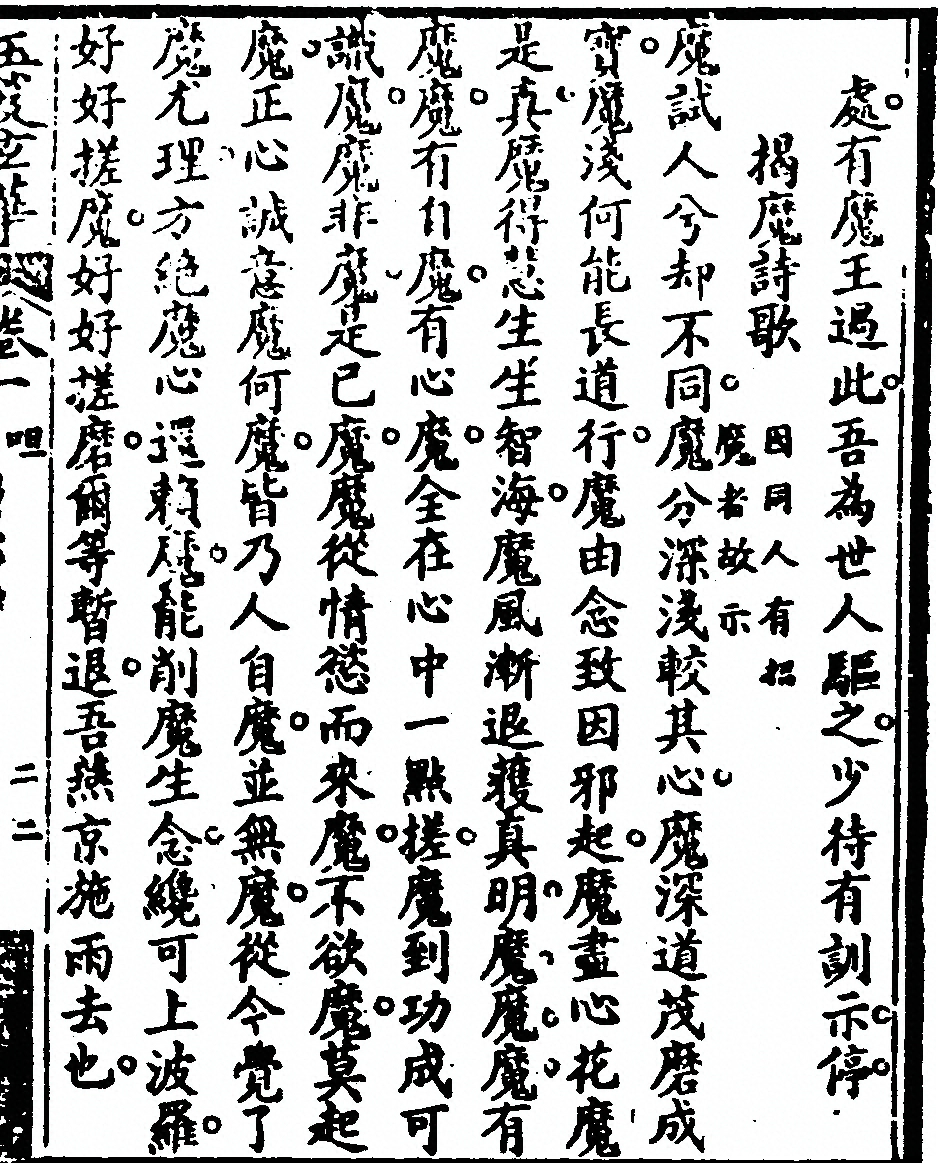 處有魔王過此吾為世人驅之少待有訓示停
揭魔詩歌 因同人有招魔者故示
魔試人兮却不同魔分深淺較其心魔深道茂磨成
寶魔淺何能長道行魔由念致因邪起魔盡心花魔
是真魔得慧生坐智海魔風漸退獲真明魔魔魔有
魔魔有自魔有心魔全在心中一點搓魔到功成可
識魔魔非魔是已魔魔從情慾而來魔不欲魔莫起
魔正心誠意魔何魔皆乃人自魔並無魔從今覺了
魔尤理方絕魔心還賴魔能削魔生念纔可上波羅
好好搓魔好好搓磨爾等暫退吾燕京施雨去也
卷一 呾 二二